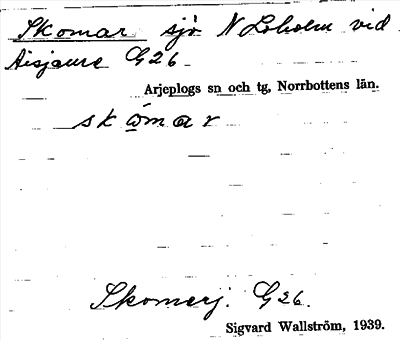 Skomar sjö N Loholm vid
Aisjaure G26
Arjeplogs sn och tg, Norrbottens län.
skómar
Skomerj. G26.
Sigvard Wallström, 1939.